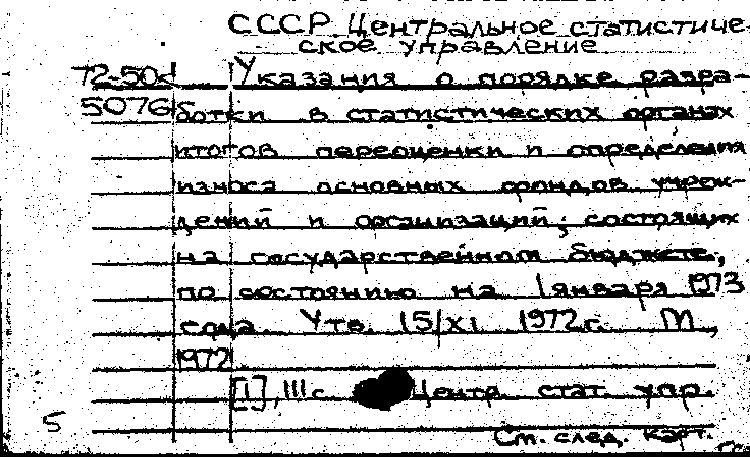 СССР Центральное статистиче-
ское управление
72-50d Указания о порядке разра-
5076 ботки в статистических органах
итогов переоценки и определения
износа основных фондов учреж-
дений и организаций, состоящих
на государственном бюджете,
по состоянию на 1 января 1973
года. Утв. 15/XI 1972 г. М.,
1972
[1], III с. Центр. стат. упр.
5
См. след. карт.